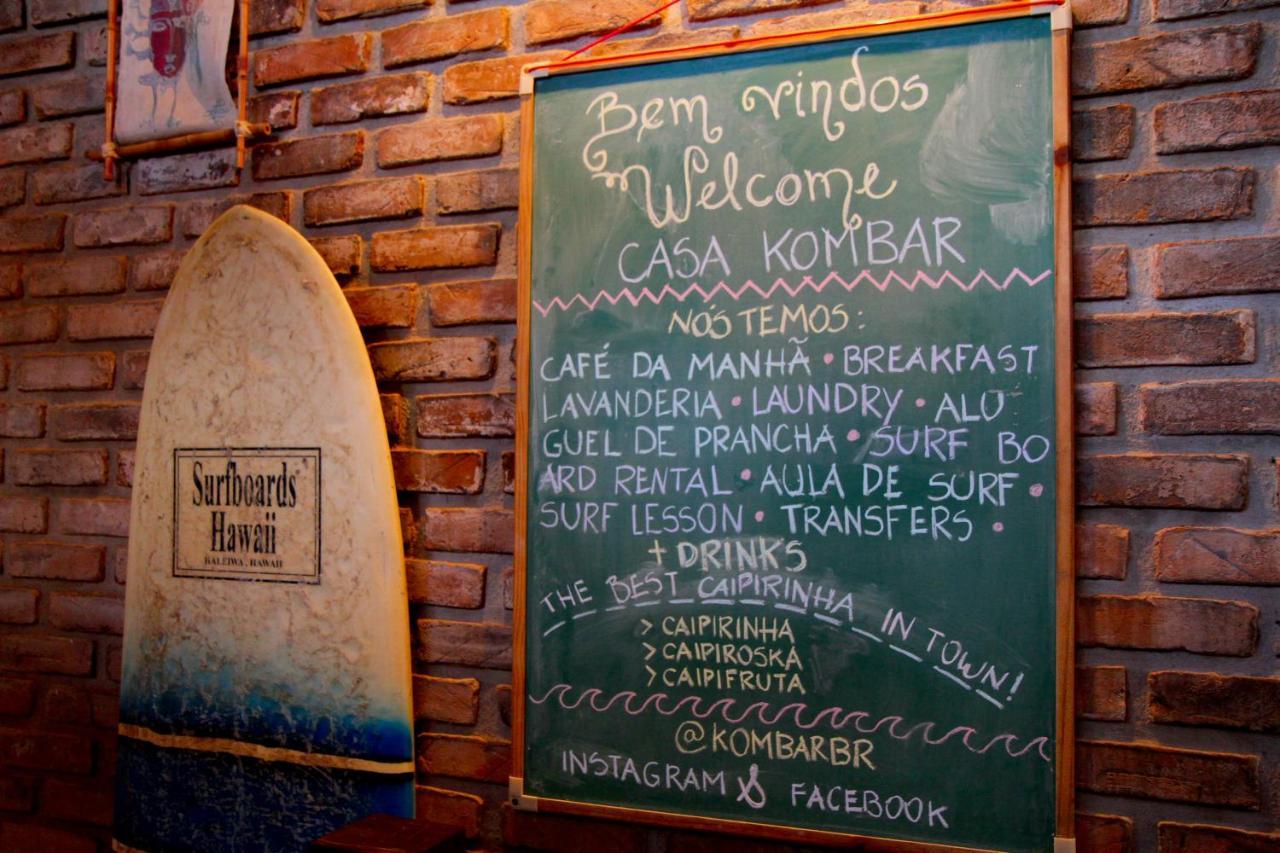 Surfboards
Hawaii
HALEIWA, HAWAII
Bem vindos
Welcome
CASA KOMBAR
NÓS TEMOS:
CAFÉ DA MANHÃ • BREAKFAST
LAVANDERIA • LAUNDRY • ALU
GUEL DE PRANCHA • SURF BO
ARD RENTAL • AULA DE SURF •
SURF LESSON • TRANSFERS •
+ DRINKS
THE BEST CAIPIRINHA IN TOWN!
> CAIPIRINHA
> CAIPIROSKA
> CAIPIFRUTA
@KOMBARBR
INSTAGRAM & FACEBOOK